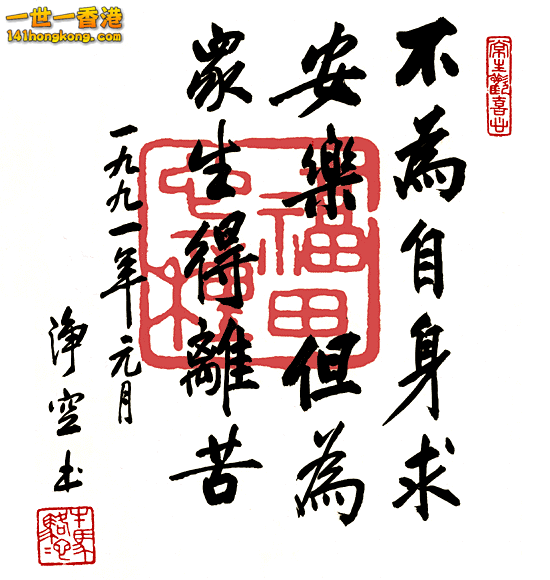 一世一香港
141hongkong.com
不為自身求
安樂但為
眾生得離苦
一九九一年元月
淨空书
常生歡喜心
福田